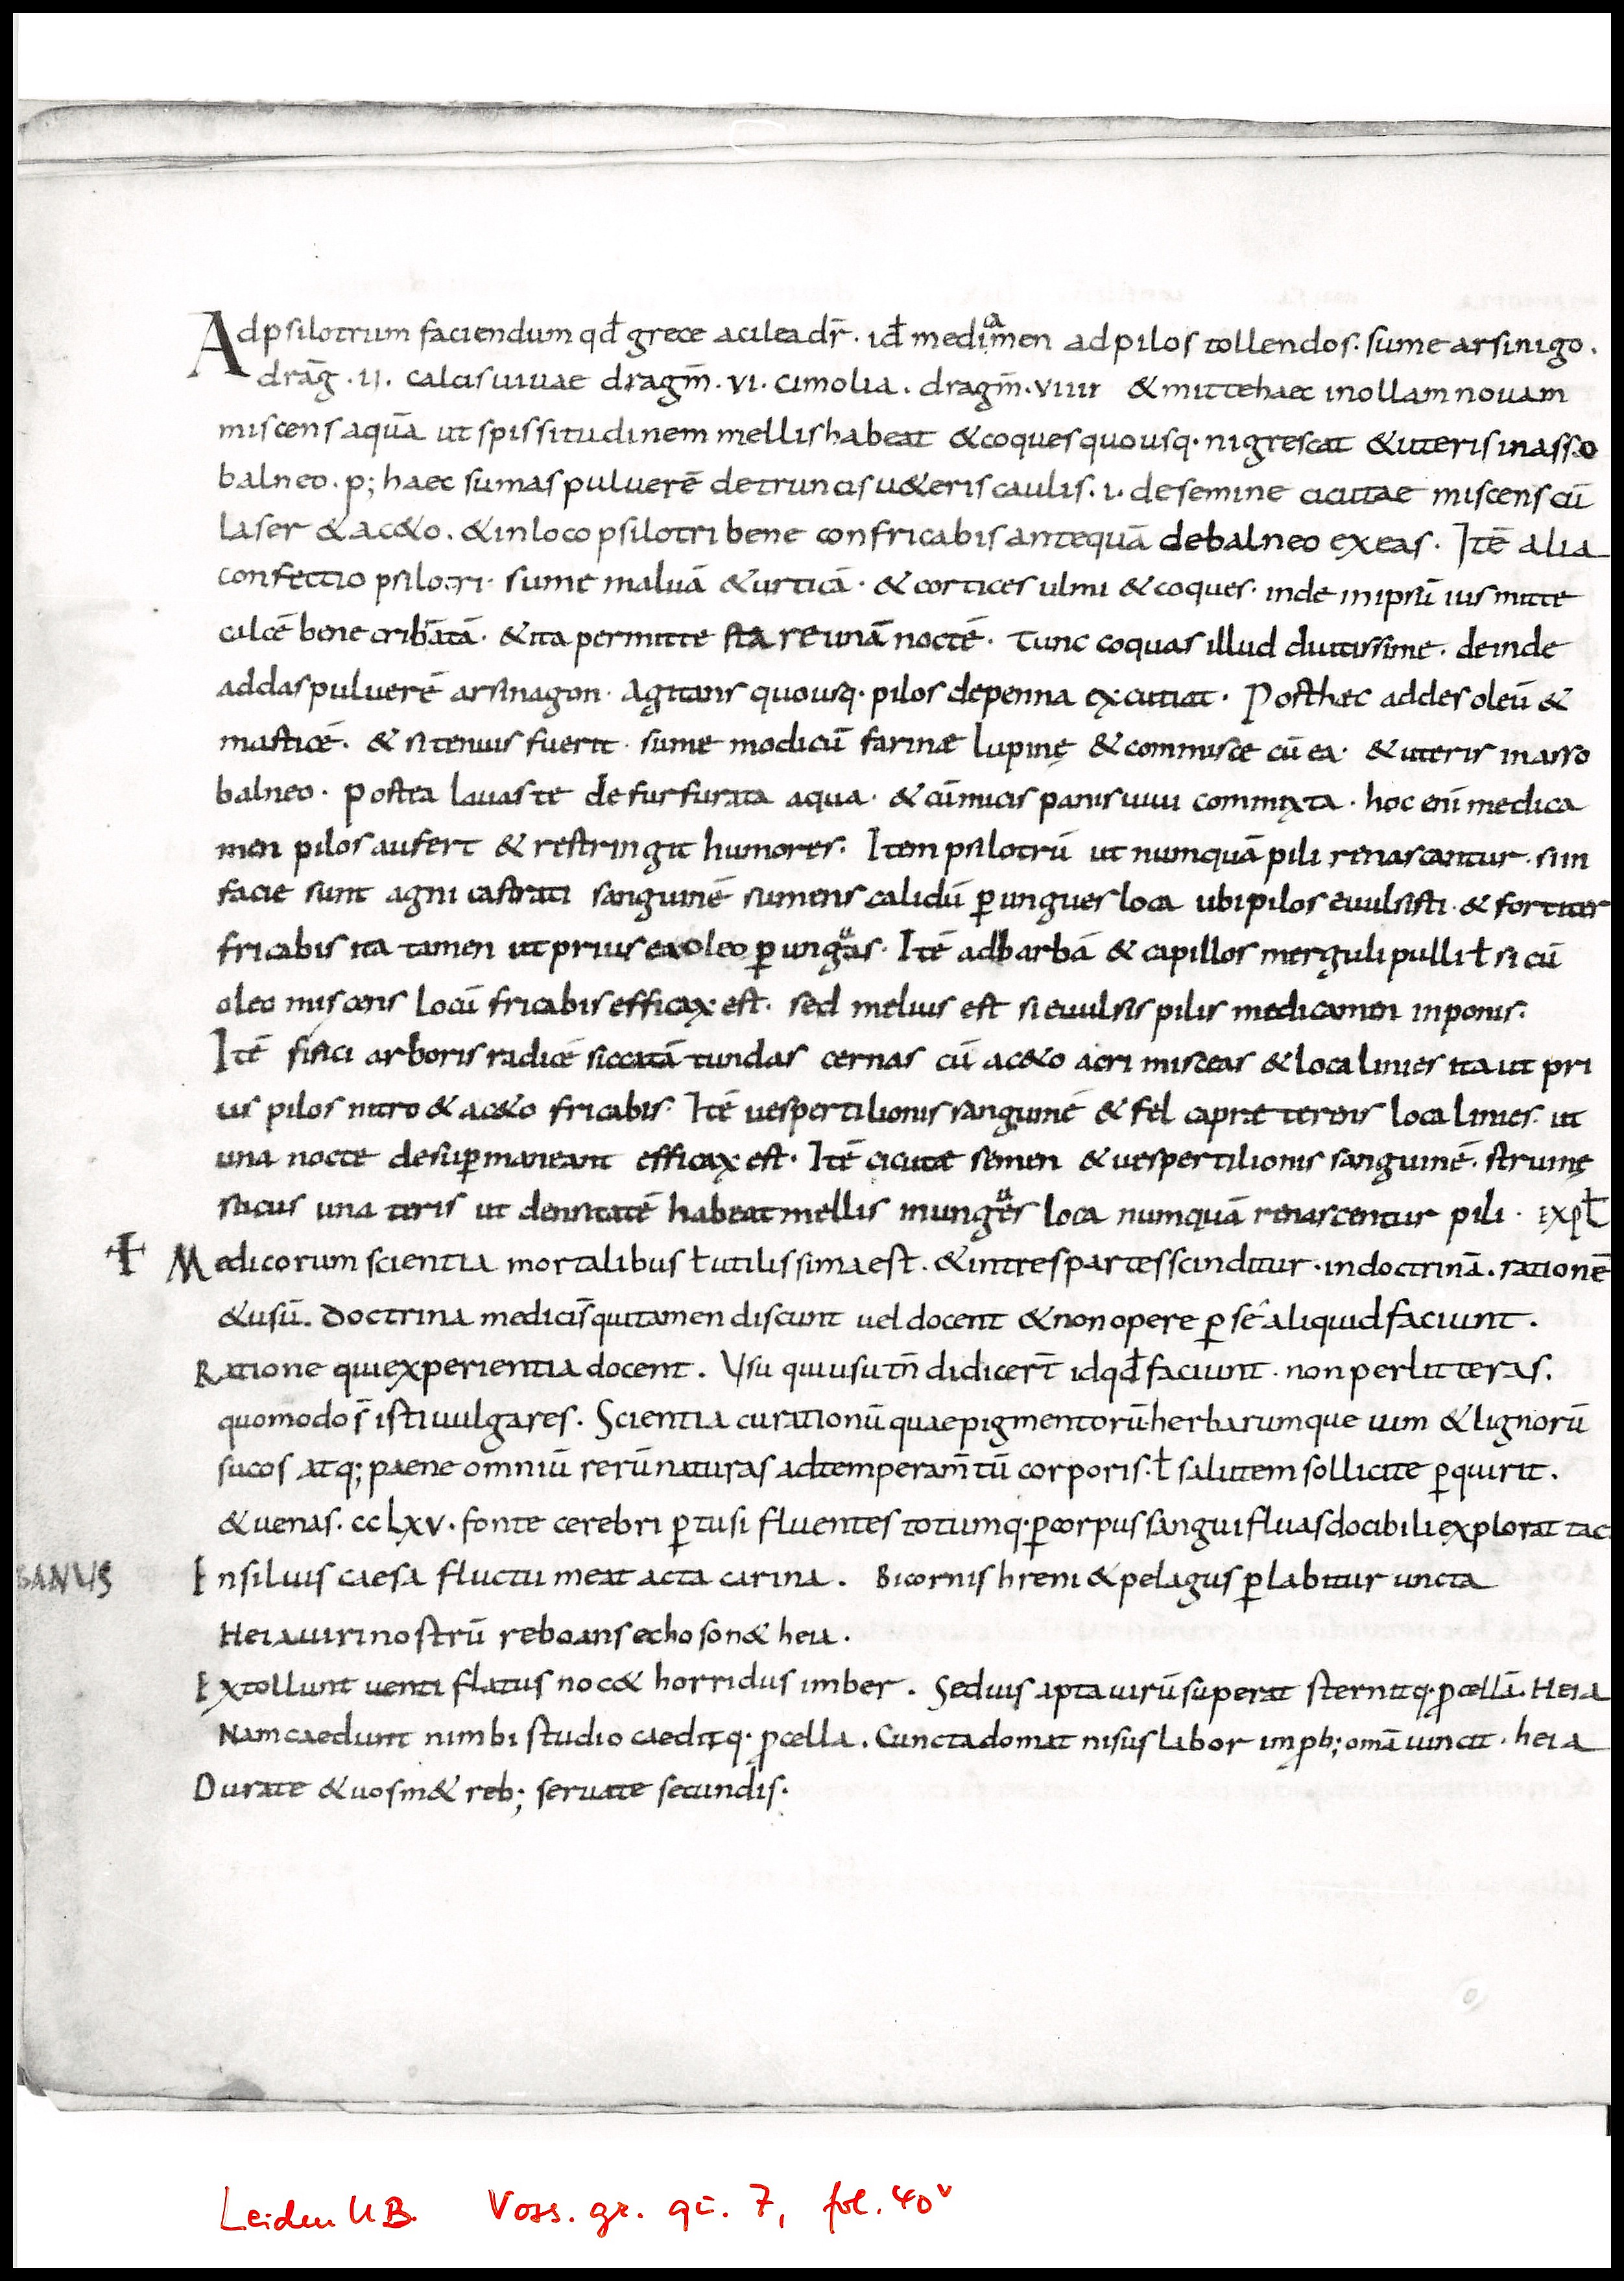 Adpsilotrum faciendum qđ grece acileadr̄. iđ medim̄en adpilos tollendos. sume arsinigo.
drāg. II. calcis uiuae dragm̄. VI. cimolia. dragm̄. VIIII & mitte haec in ollam nouam
miscens aquā ut spissitudinem mellis habeat & coques quousq· nigrescat & uteris in asso
balneo. p; haec sumas puluerē de truncis u&eris caulis. i. de semine cicutae miscens cū
laser & ac&o. & in loco psilotri bene confricabis antequā de balneo exeas. Itē alia
confectio psilotri. sume maluā & urticā. & cortices ulmi & coques. inde in ipsū ius mitte
calcē bene cribatā. & ita permitte stare unā noctē. Tunc coquas illud diutissime. deinde
addas puluerē arsinagon. Agitans quousq· pilos de penna excutiat. Posthęc addes oleū &
masticē. & si tenuis fuerit. sume modicū farinæ lupinę & commisce cū ea. & uteris in asso
balneo. postea lauas te de furfurata aqua. & cū micis panis uiui commixta. hoc enī medica
men pilos aufert & restringit humores. Item psilotrū ut numquā pili renascantur. si in
facie sunt agni castrati sanguinē sumens calidū ꝑungues loca ubi pilos euulsisti. & fortiter
fricabis ita tamen ut prius ea oleo ꝑunguas. Itē ad barbā & capillos merguli pulli ł si cū
oleo miscens locū fricabis efficax est. sed melius est si euulsis pilis medicamen inponis.
Itē sisici arboris radicē siccatā tundas cernas cū ac&o acri misceas & loca linies ita ut pri
us pilos nitro & ac&o fricabis. Itē uespertilionis sanguinē & fel capræ terens loca linies. ut
una nocte desuꝑ maneant efficax est. Itē cicutæ semen & uespertilionis sanguinē. strumę
sucus una teris ut densitatē habeat mellis inunguęs loca numquā renascentur pili. EXPŁ
Medicorum scientia mortalibus ł utilissima est. & in tres partes scinditur. in doctrinā. rationē
& usū. Doctrina medicis̄ qui tamen discunt uel docent & non opere ꝑ sē aliquid faciunt.
Ratione qui experientia docent. Vsu qui usu tn̄ didicer̄t id qđ faciunt. non per litteras.
quomodo s̄ isti uulgares. Scientia curationū quae pigmentorū herbarumque uim & lignorū
sucos atq; paene omniū rerū naturas ad temperam̄tū corporis. ł salutem sollicite ꝑquirit.
& uenas. CCLXV. fonte cerebri ꝑtusi fluentes totumq· ꝑ corpus sanguifluas docibili explorat tac
BANUS
En siluis caesa fluctu meat acta carina. Bicornis hreni & pelagus ꝑlabitur uncta
Heia uiri nostrū reboans echo son& heia.
Extollunt uenti flatus noc& horridus imber. Sed uis apta uirū superat sternitq· ꝓcellā. Heia
Nam caedunt nimbi studio caeditq· ꝓcella. Cuncta domat nisus labor imꝓb; omā uincit. heia
Durate & uosm& reb; seruate secundis.
Leiden UB. Voss. gr. qu. 7, fol. 40v